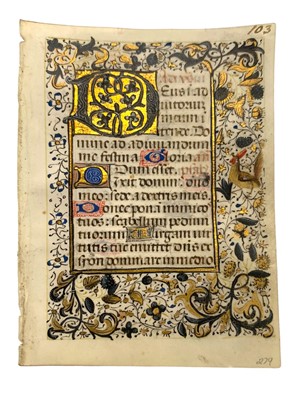 103
Deus i ad
iutoriuz
meum i
tence. Do
mine ad adiuuandum
me festina Gloria.
Dum esset.
Dixit domin dño
meo: sede a dextris meis.
Donec ponā inimicos
tuos: scabellum pedum
tuorum Virgam uir
tutis tue emittet dñs ex
syon dominare in medio
279